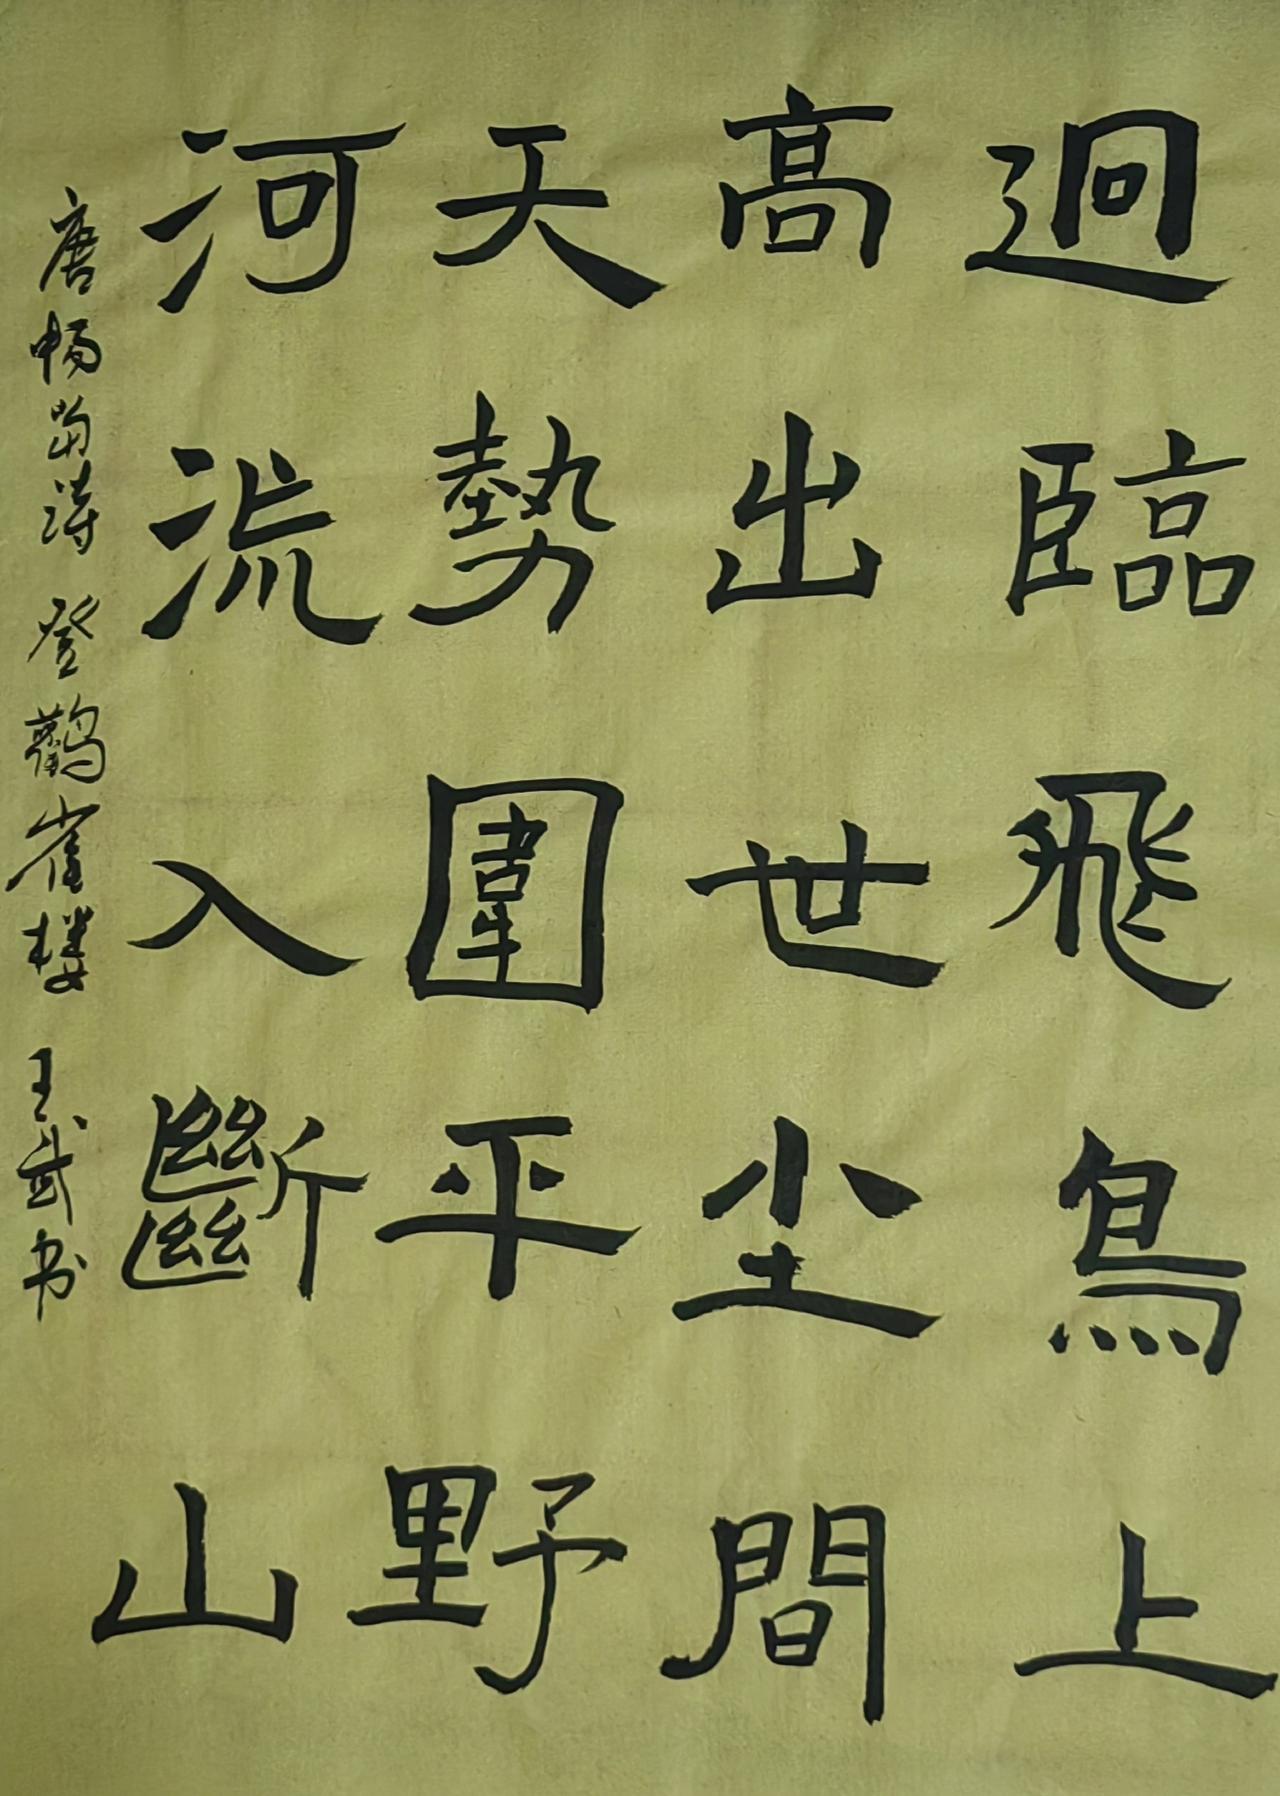 迥臨飛鳥上
高出世尘間
天勢圍平野
河流入斷山
唐暢當詩 登鸛雀楼 王武书